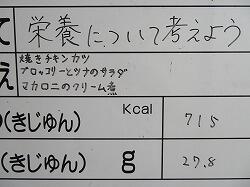 て 栄養について考えよう
え 焼きチキンカツ
ブロッコリーとツナのサラダ
マカロニのクリーム煮
Kcal
(きじゅん) 715
(きじゅん) g 27.8